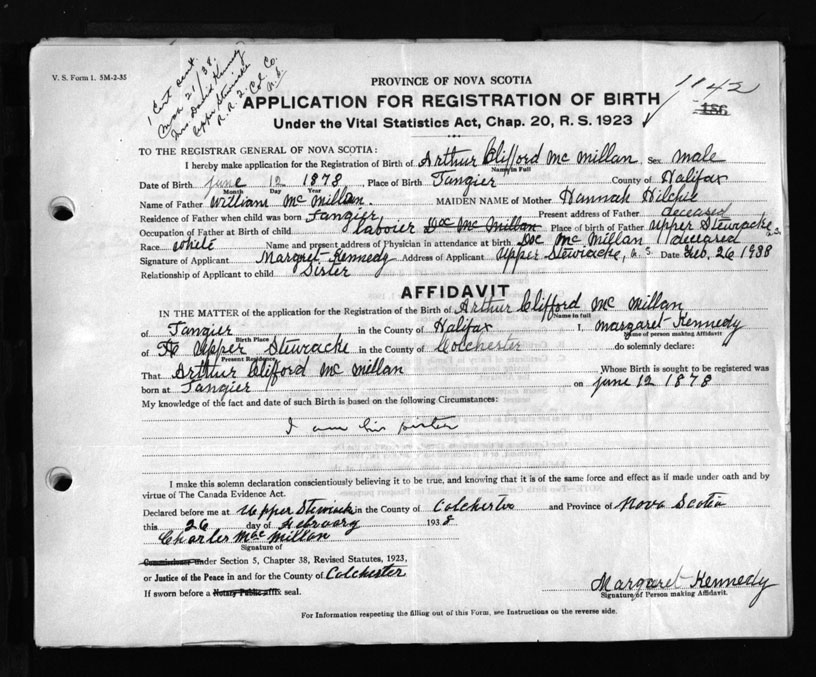 V. S. Form 1. 5M-2-35
1 Cert sent.
Mar 21/38.
Mrs David Kennedy
Upper Stewiacke
R. R. 2. Col. Co.
N. S.
PROVINCE OF NOVA SCOTIA
1142
APPLICATION FOR REGISTRATION OF BIRTH
186
Under the Vital Statistics Act, Chap. 20, R. S. 1923
TO THE REGISTRAR GENERAL OF NOVA SCOTIA:
I hereby make application for the Registration of Birth of Arthur Clifford Mc Millan, Sex male
Name in Full
Date of Birth june 12 1878, Place of Birth Tangier County of Halifax
Month Day Year
Name of Father William Mc Millan. MAIDEN NAME of Mother Hannah Hilchie
Residence of Father when child was born Tangier Present address of Father deceased
Occupation of Father at Birth of child laboier Doc Mc Millan Place of birth of Father Upper Stewiacke N.S.
Race white Name and present address of Physician in attendance at birth Doc Mc Millan deceared
Signature of Applicant Margret Kennedy Address of Applicant Upper Stewiacke, N. S. Date Feb. 26 1938
Relationship of Applicant to child Sister
AFFIDAVIT
IN THE MATTER of the application for the Registration of the Birth of Arthur Clifford Mc Millan
Name in full
of Tangier in the County of Halifax I, Margaret Kennedy
Birth Place Name of person making Affidavit
of Upper Stewiacke in the County of Colchester do solemnly declare:
Present Residence
That Arthur Clifford Mc Millan Whose Birth is sought to be registered was
born at Tangier on june 12 1878
My knowledge of the fact and date of such Birth is based on the following Circumstances:
I am his sister
I make this solemn declaration conscientiously believing it to be true, and knowing that it is of the same force and effect as if made under oath and by
virtue of The Canada Evidence Act.
Declared before me at Upper Stewiacke in the County of Colchester and Province of Nova Scotia
this 26 day of February 1938
Charles Mac Millan
Signature of
Commissioner under Section 5, Chapter 38, Revised Statutes, 1923,
or Justice of the Peace in and for the County of Colchester
If sworn before a Notary Public affix seal.
Margaret Kennedy
Signature of Person making Affidavit.
For Information respecting the filling out of this Form, see Instructions on the reverse side.